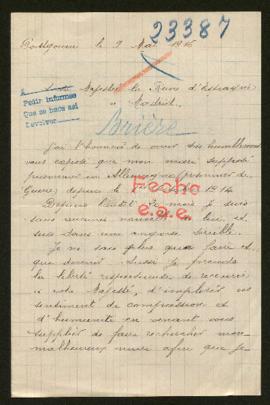 23387
le 9 Mai 1916
Majesté la Reine d'Espagne
à Madrid.
Pedir informes
Que se hace así
Devolver
Brière
J'ai l'honneur de venir très humblement
vous exposer que mon mari supposé
prisonnier en Allemagne (prisonnier de
Guerre) depuis le 1914
Fecho
e.a.e.
Depuis mois je suis
sans aucunes nouvelles de lui, et
suis dans une angoisse terrible.
Je ne sais plus que faire et
que devenir. Aussi je prends
la liberté respectueuse, de recourir
à votre Majesté, d'implorer vos
sentiments de compassion et
d'humanité en venant vous
supplier de faire rechercher mon
malheureux mari afin que je